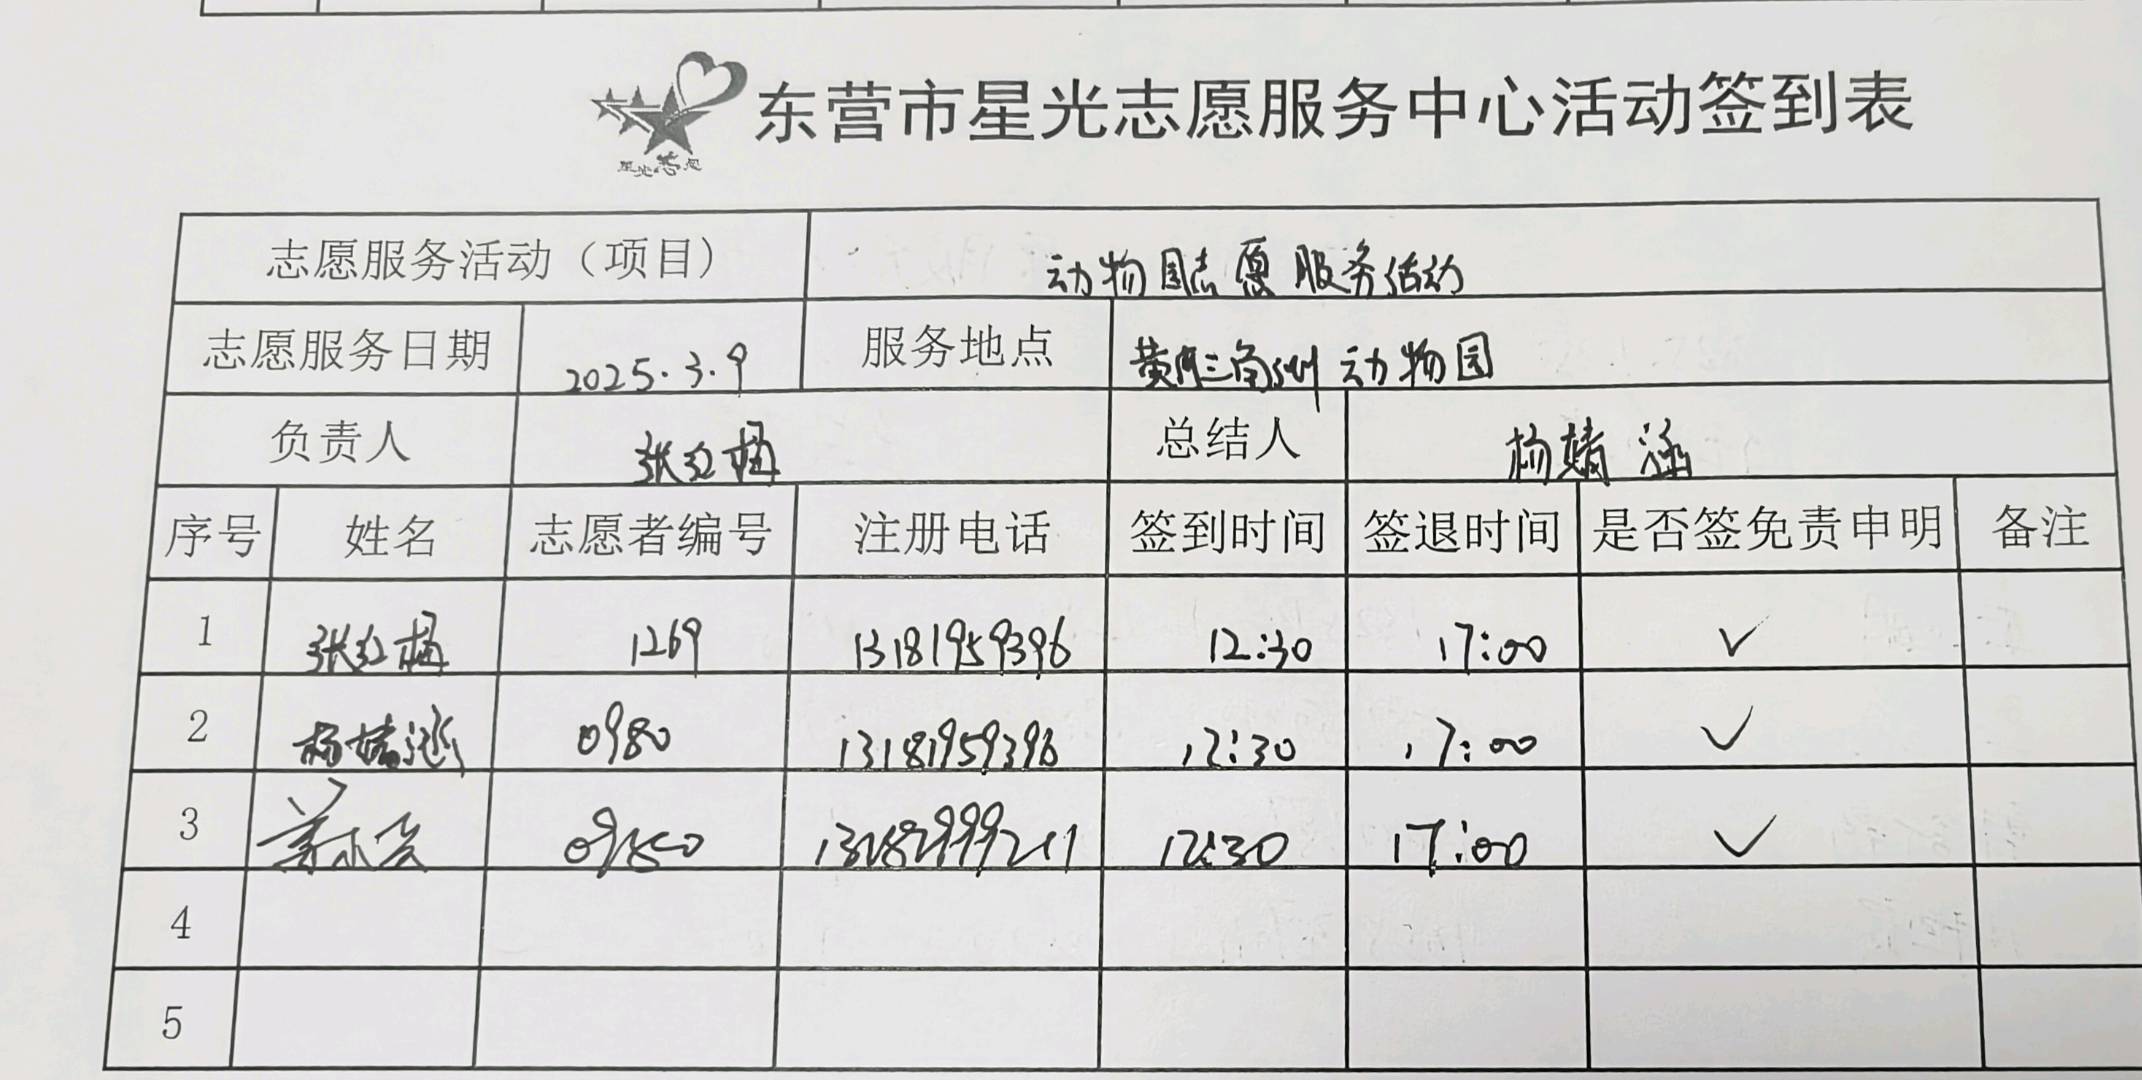 东营市星光志愿服务中心活动签到表
志愿服务活动（项目） 动物园志愿服务活动
志愿服务日期 2025.3.9 服务地点 黄河三角洲动物园
负责人 张红梅 总结人 杨婧涵
序号 姓名 志愿者编号 注册电话 签到时间 签退时间 是否签免责申明 备注
1 张红梅 1269 13181959396 12:30 17:00 ✓
2 杨婧涵 0980 13181959396 12:30 17:00 ✓
3 12:30 17:00 ✓
4
5